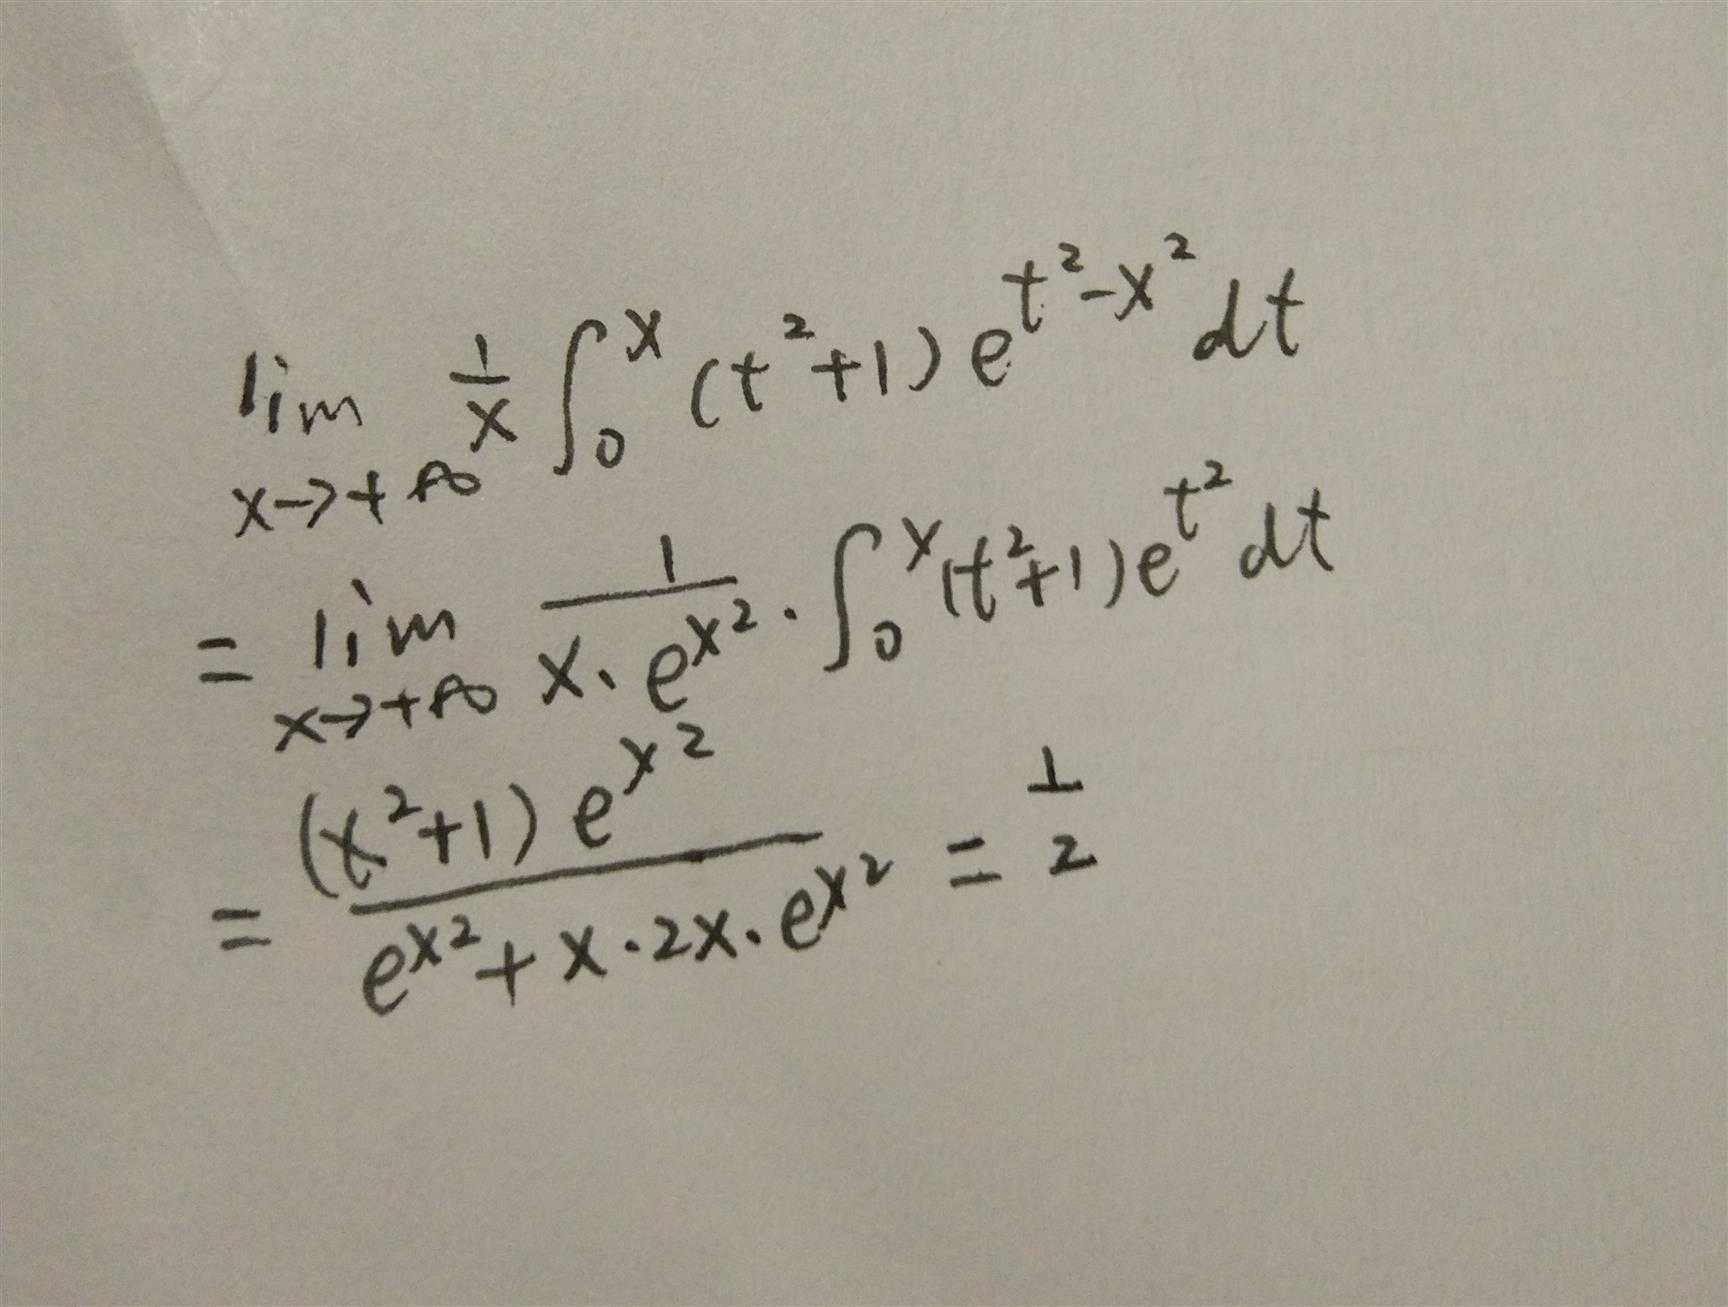 lim x→+∞ 1/x ∫₀ˣ (t²+1) e^(t²-x²) dt
= lim x→+∞ 1/(x·e^(x²)) · ∫₀ˣ (t²+1) e^(t²) dt
= (x²+1) e^(x²) / (e^(x²) + x·2x·e^(x²)) = 1/2